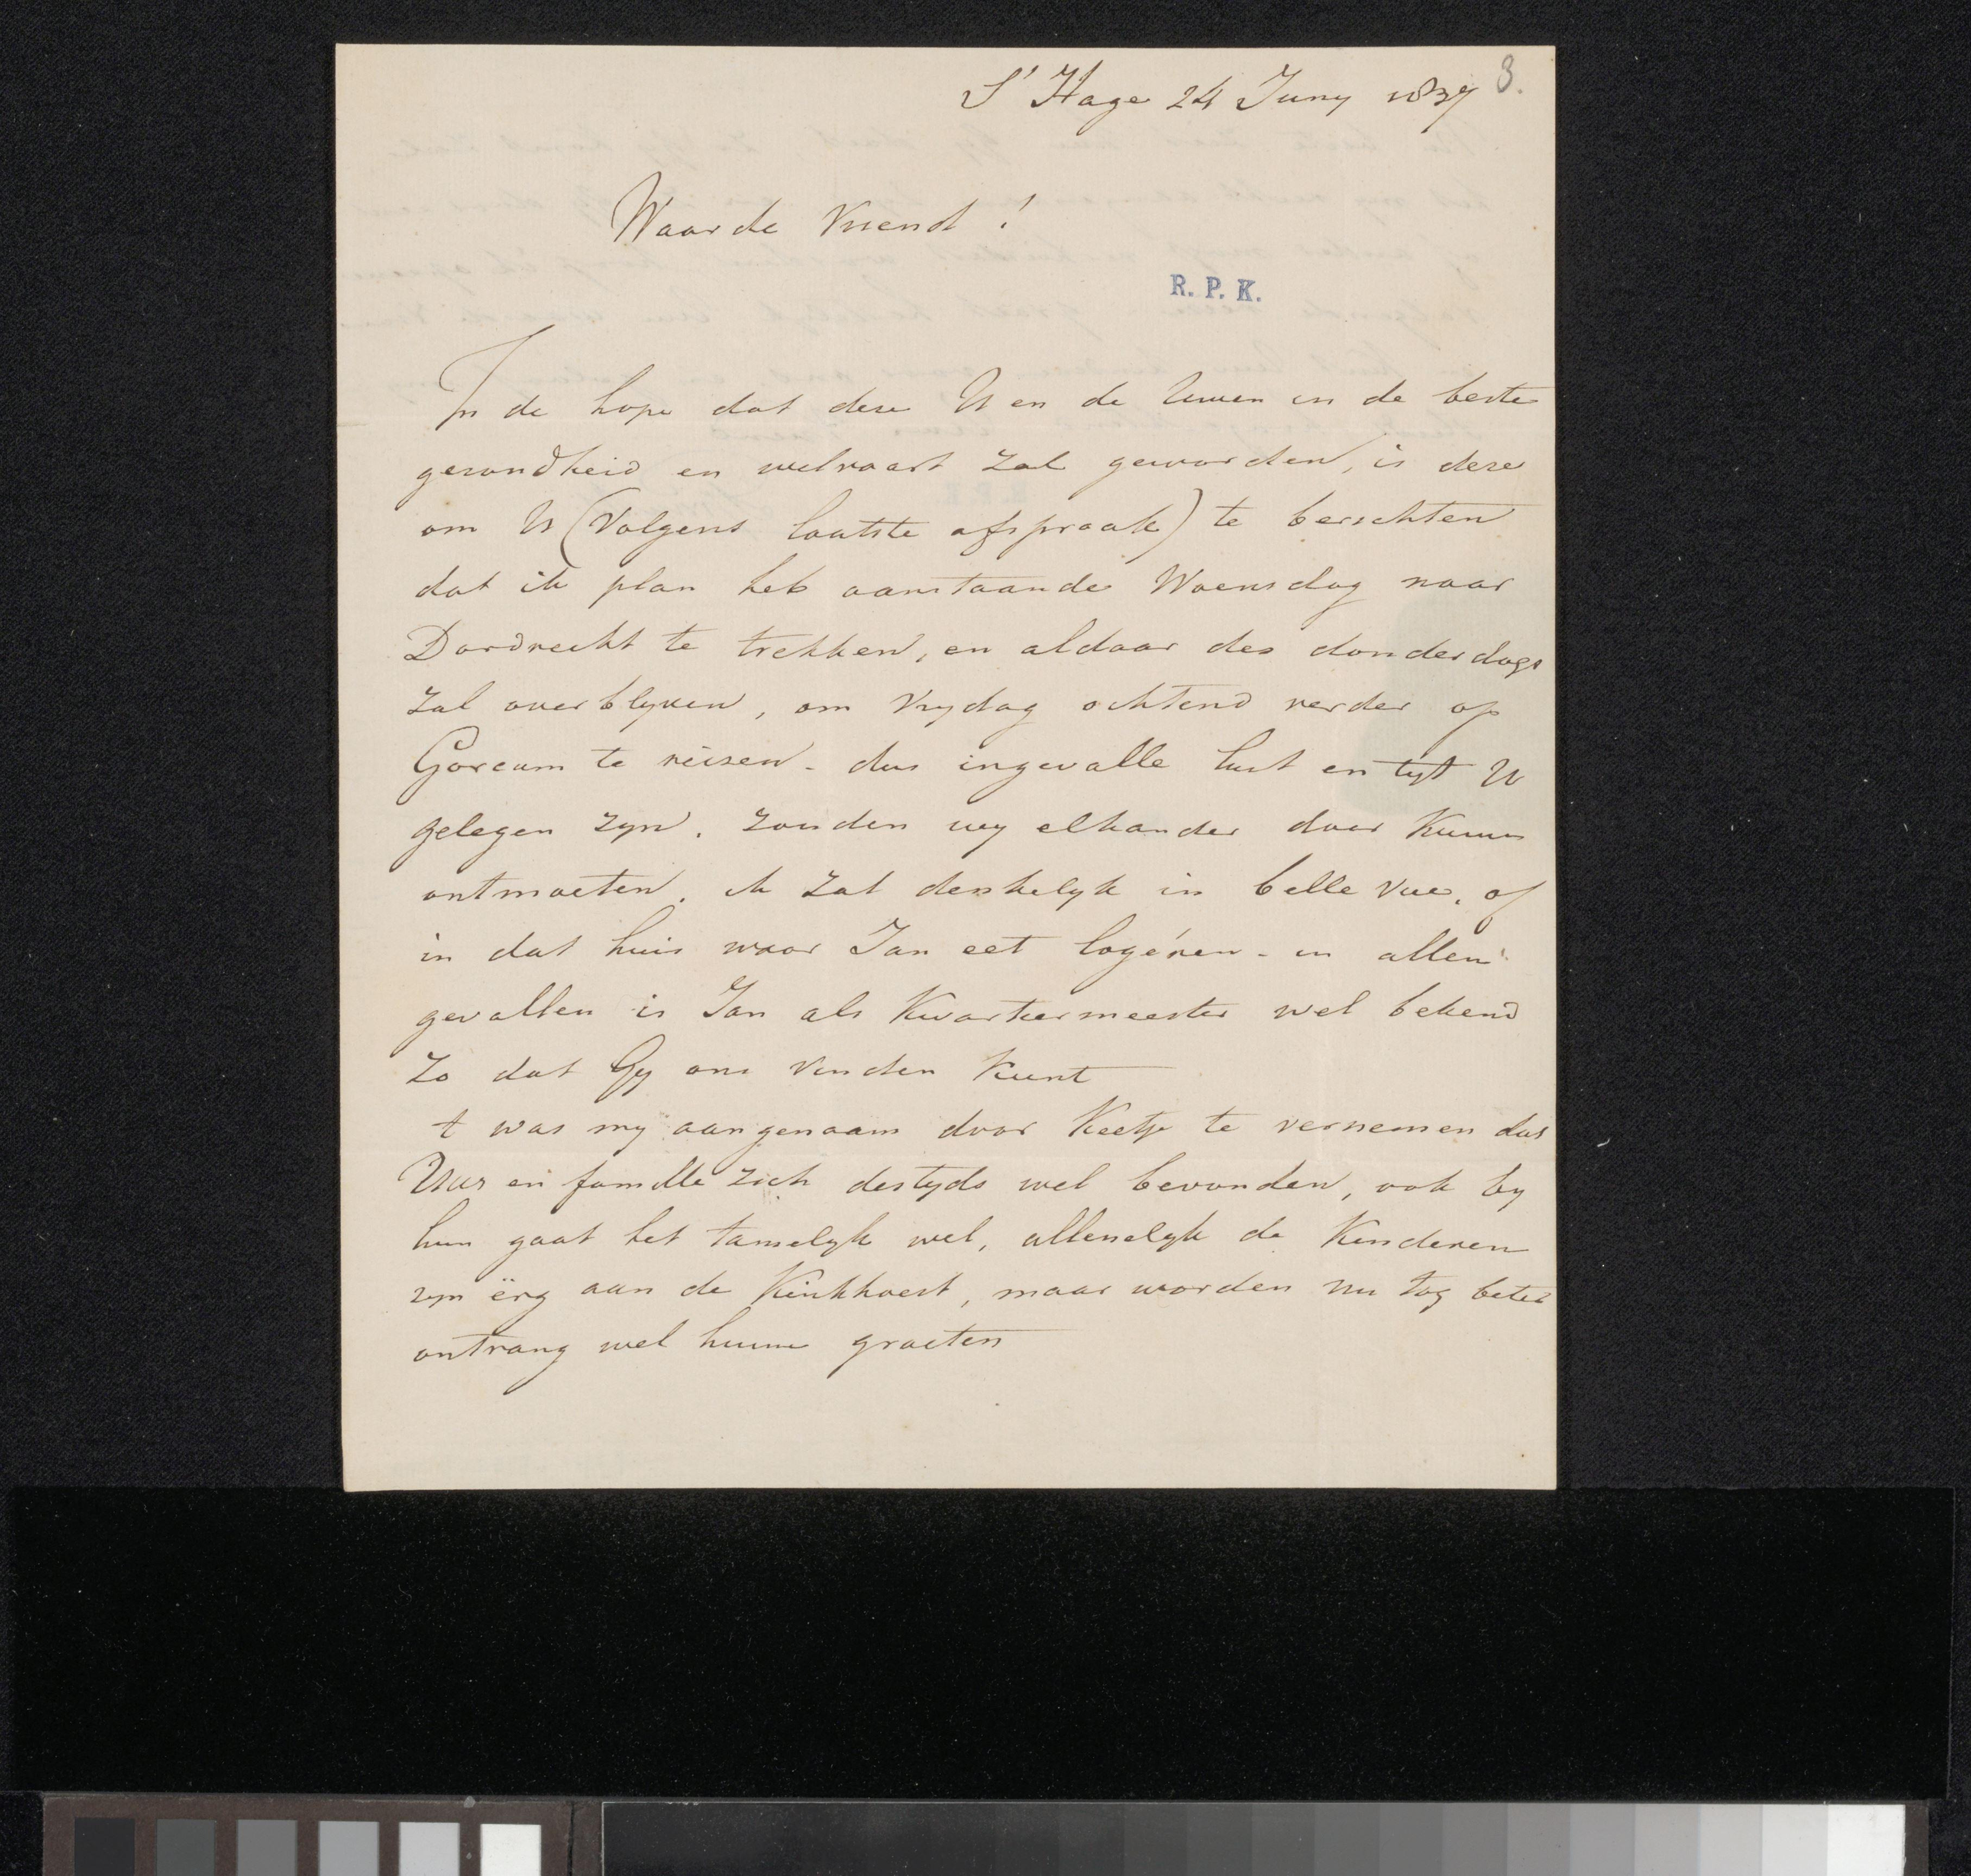 S' Hage 24 Juny 1837
3.
Waarde Vriend !
R. P. K.
In de hope dat deze U en de Uwen in de beste
gezondheid en welvaart zal geworden, is deze
om U (volgens laatste afspraak) te berichten
dat ik plan heb aanstaande Woensdag naar
Dordrecht te trekken, en aldaar des donderdags
zal overblyven, om Vrydag ochtend verder op
Gorcum te reizen - dus ingevalle lust en tyt U
gelegen zyn, zouden wy elkander daar kunnen
ontmoeten. ik zal denkelyk in belle vue, of
in dat huis waar Jan eet logéren - in allen
gevallen is Jan als Kwartiermeester wel bekend
Zo dat Gy ons vinden kunt
t was my aangenaam door Keetje te vernemen dat
en famille zich destyds wel bevonden, ook by
hun gaat het tamelyk wel, allenelyk de Kinderen
zyn ërg aan de Kinkhoest, maar worden nu tog beter
ontvang wel hunne groeten